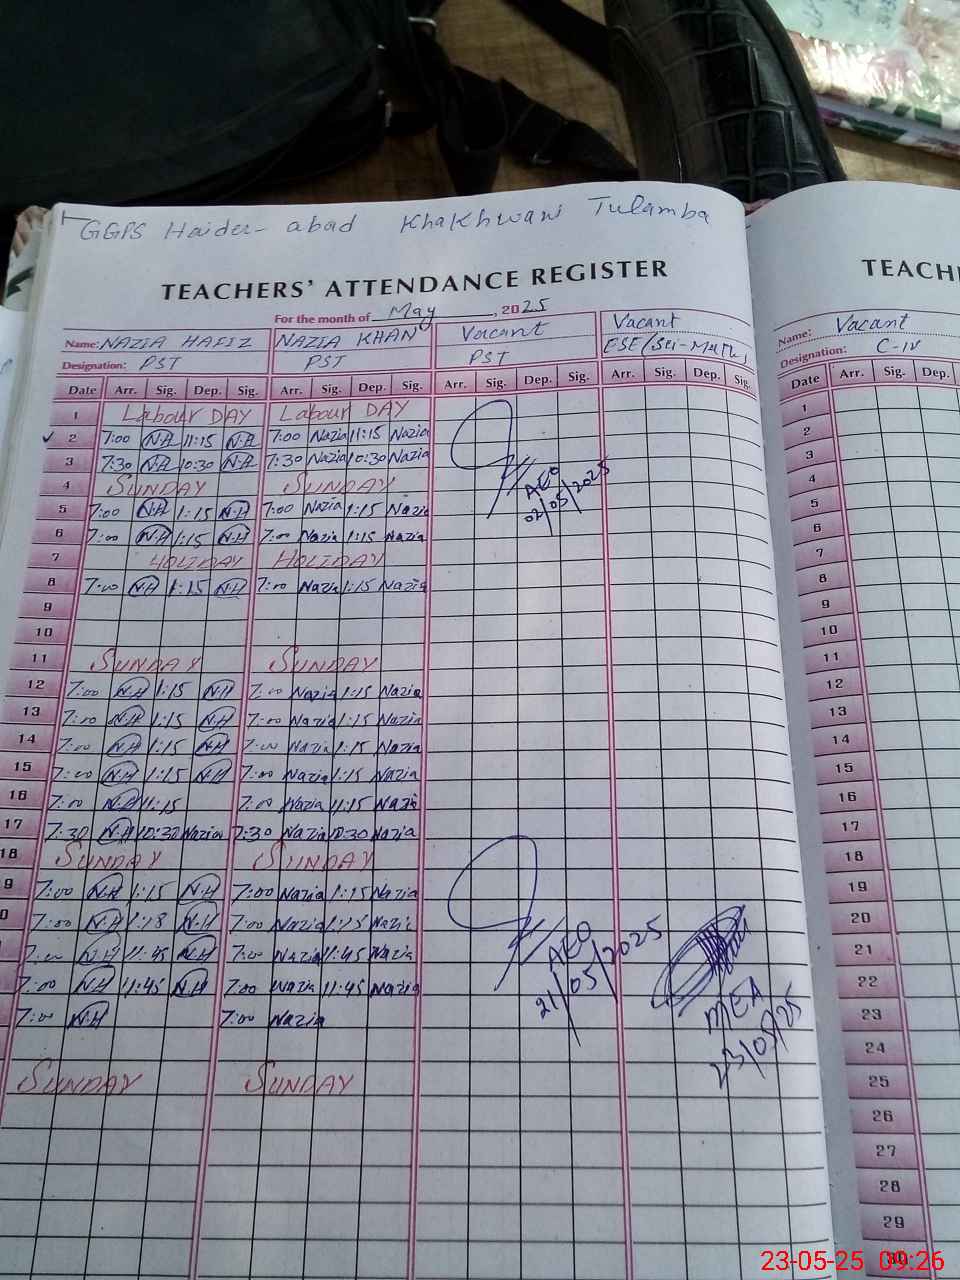 GGPS Haider-abad Khakhwani Tulamba
TEACHERS' ATTENDANCE REGISTER
For the month of May, 2025
Name: NAZIA HAFIZ NAZIA KHAN Vacant Vacant
Designation: PST PST PST ESE (Sci-Math)
Date Arr. Sig. Dep. Sig. Arr. Sig. Dep. Sig. Arr. Sig. Dep. Sig. Arr. Sig. Dep. Sig.
1 Labour DAY Labour DAY
2 7:00 N.H 11:15 N.H 7:00 Nazia 11:15 Nazia
3 7:30 N.H 10:30 N.H 7:30 Nazia 10:30 Nazia
4 SUNDAY SUNDAY
5 7:00 N.H 1:15 N.H 7:00 Nazia 1:15 Nazia
6 7:00 N.H 1:15 N.H 7:00 Nazia 1:15 Nazia
7 HOLIDAY HOLIDAY
8 7:00 N.H 1:15 N.H 7:00 Nazia 1:15 Nazia
9
10
11 SUNDAY SUNDAY
12 7:00 N.H 1:15 N.H 7:00 Nazia 1:15 Nazia
13 7:00 N.H 1:15 N.H 7:00 Nazia 1:15 Nazia
14 7:00 N.H 1:15 N.H 7:00 Nazia 1:15 Nazia
15 7:00 N.H 1:15 N.H 7:00 Nazia 1:15 Nazia
16 7:00 N.H 11:15 7:00 Nazia 11:15 Nazia
17 7:30 N.H 10:30 Nazia 7:30 Nazia 10:30 Nazia
18 SUNDAY SUNDAY
9 7:00 N.H 1:15 N.H 7:00 Nazia 1:15 Nazia
0 7:00 N.H 1:18 N.H 7:00 Nazia 1:15 Nazia
7:00 N.H 11:45 N.H 7:00 Nazia 11:45 Nazia
7:00 N.H 11:45 N.H 7:00 Nazia 11:45 Nazia
7:00 N.H 7:00 Nazia
SUNDAY SUNDAY
AEO
02/05/2025
AEO
21/05/2025
MEA
23/05/25
TEACH
Name: Vacant
Designation: C-IV
Date Arr. Sig. Dep.
1
2
3
4
5
6
7
8
9
10
11
12
13
14
15
16
17
18
19
20
21
22
23
24
25
26
27
28
29
30
23-05-25 09:26